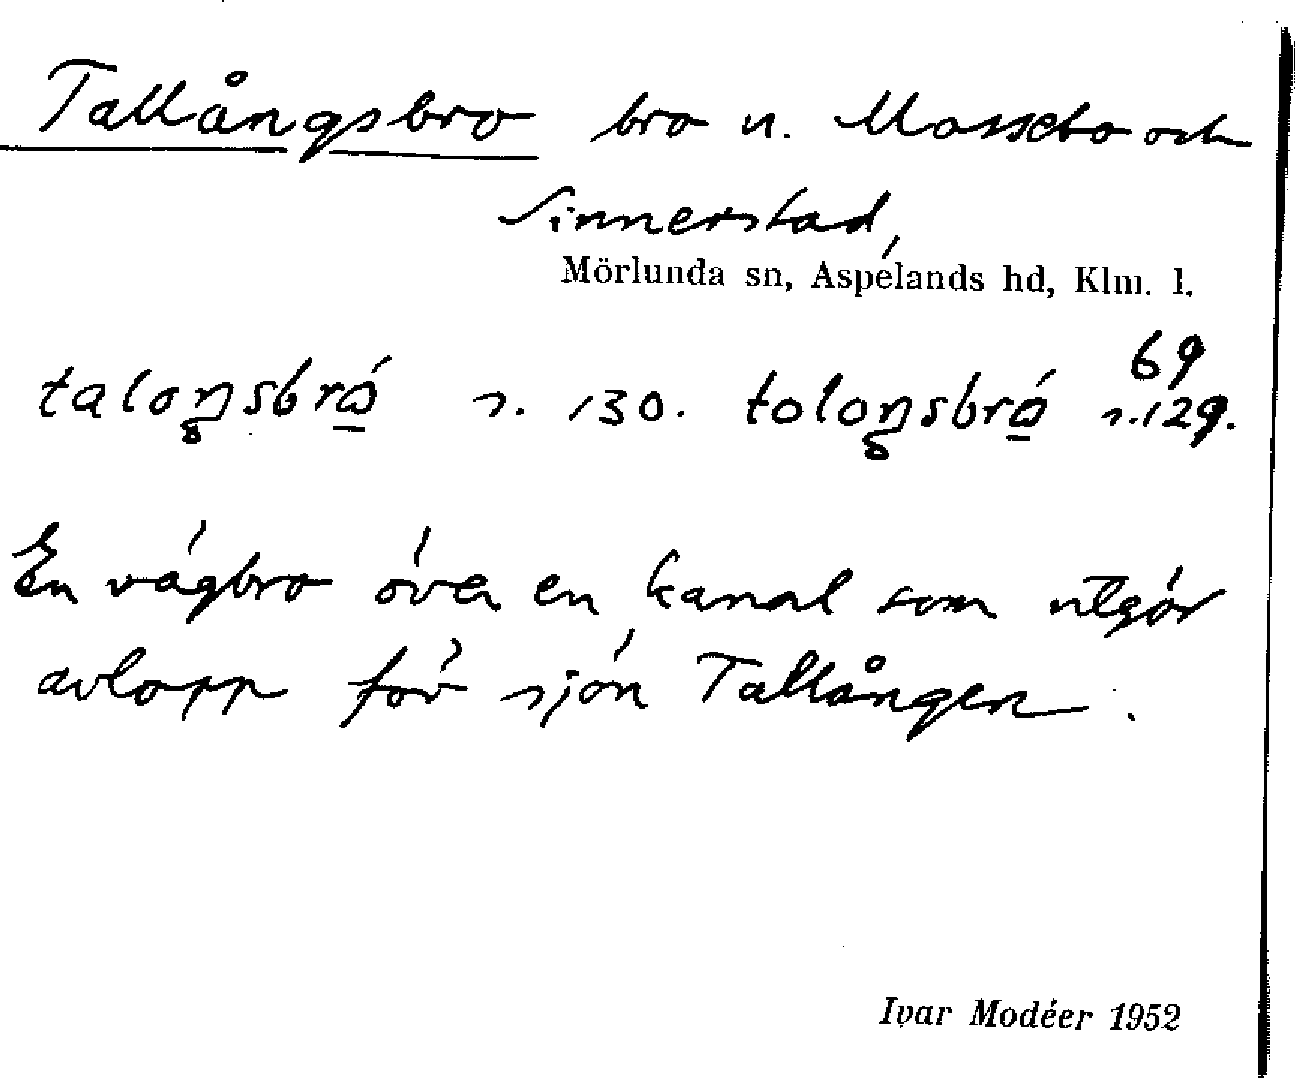 Tallångsbro bro u. Mossebo och
Sinnerstad,
Mörlunda sn, Aspelands hd, Klm. l.
69
taloŋsbrώ̲ s. 130. toloŋsbrώ̲ s. 129.
En vägbro över en kanal som utgör
avlopp för sjön Tallången.
Ivar Modéer 1952